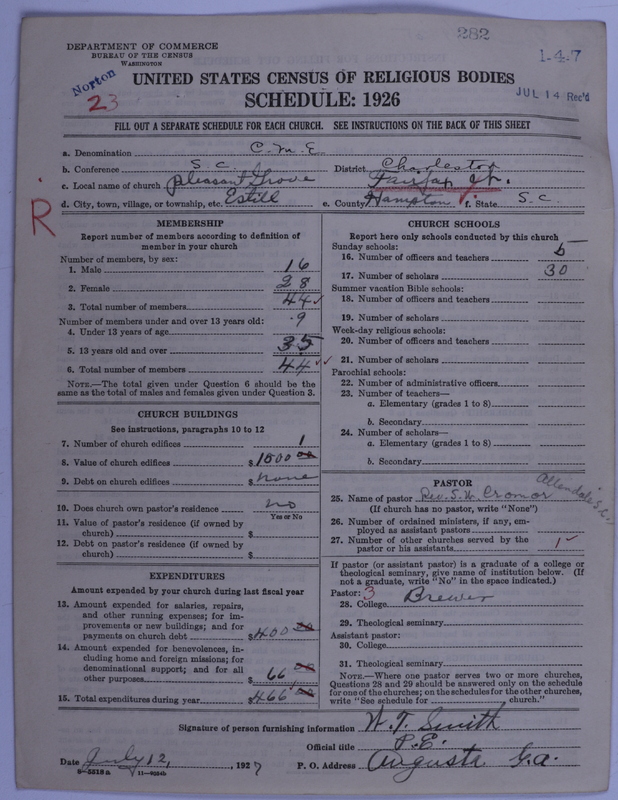 282
DEPARTMENT OF COMMERCE
BUREAU OF THE CENSUS
WASHINGTON
1-4-7
Norton
23
UNITED STATES CENSUS OF RELIGIOUS BODIES
JUL 14 Rec'd
SCHEDULE: 1926
FILL OUT A SEPARATE SCHEDULE FOR EACH CHURCH. SEE INSTRUCTIONS ON THE BACK OF THIS SHEET
a. Denomination C.M.E.
b. Conference S.C. District Charleston
c. Local name of church Pleasant Grove Fairfax
d. City, town, village, or township, etc. Estill e. County Hampton f. State S.C.
R
MEMBERSHIP
Report number of members according to definition of
member in your church
Number of members, by sex:
1. Male 16
2. Female 28
3. Total number of members 44 ✓
Number of members under and over 13 years old:
4. Under 13 years of age 9
5. 13 years old and over 35
6. Total number of members 44 ✓✓
NOTE.—The total given under Question 6 should be the
same as the total of males and females given under Question 3.
CHURCH BUILDINGS
See instructions, paragraphs 10 to 12
7. Number of church edifices 1
8. Value of church edifices $1500 00
9. Debt on church edifices $ none
10. Does church own pastor's residence no
Yes or No
11. Value of pastor's residence (if owned by
church) $
12. Debt on pastor's residence (if owned by
church) $
EXPENDITURES
Amount expended by your church during last fiscal year
13. Amount expended for salaries, repairs,
and other running expenses; for im-
provements or new buildings; and for
payments on church debt $400 00
14. Amount expended for benevolences, in-
cluding home and foreign missions; for
denominational support; and for all
other purposes $ 66 00
15. Total expenditures during year $466 00
CHURCH SCHOOLS
Report here only schools conducted by this church
Sunday schools:
16. Number of officers and teachers 5
17. Number of scholars 30
Summer vacation Bible schools:
18. Number of officers and teachers
19. Number of scholars
Week-day religious schools:
20. Number of officers and teachers
21. Number of scholars
Parochial schools:
22. Number of administrative officers
23. Number of teachers—
a. Elementary (grades 1 to 8)
b. Secondary
24. Number of scholars—
a. Elementary (grades 1 to 8)
b. Secondary
PASTOR
25. Name of pastor Rev. S. W. Cromor Allendale S.C.
(If church has no pastor, write "None")
26. Number of ordained ministers, if any, em-
ployed as assistant pastors
27. Number of other churches served by the
pastor or his assistants 1 ✓
If pastor (or assistant pastor) is a graduate of a college or
theological seminary, give name of institution below. (If
not a graduate, write "No" in the space indicated.)
Pastor: 3
28. College Brewer
29. Theological seminary
Assistant pastor:
30. College
31. Theological seminary
NOTE.—Where one pastor serves two or more churches,
Questions 28 and 29 should be answered only on the schedule
for one of the churches; on the schedules for the other churches,
write "See schedule for church."
Signature of person furnishing information W. T. Smith
Official title P.E.
Date July 12, 1927 P. O. Address Augusta Ga.
8-5518a 11-9354b